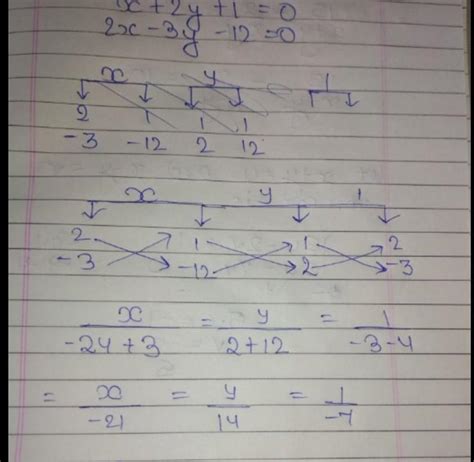 1x + 2y + 1 = 0
2x - 3y - 12 = 0
x y 1
2 1 1 1
-3 -12 2 12
x y 1
2 1 1 2
-3 -12 2 -3
x/(-24+3) = y/(2+12) = 1/(-3-4)
= x/-21 = y/14 = 1/-7